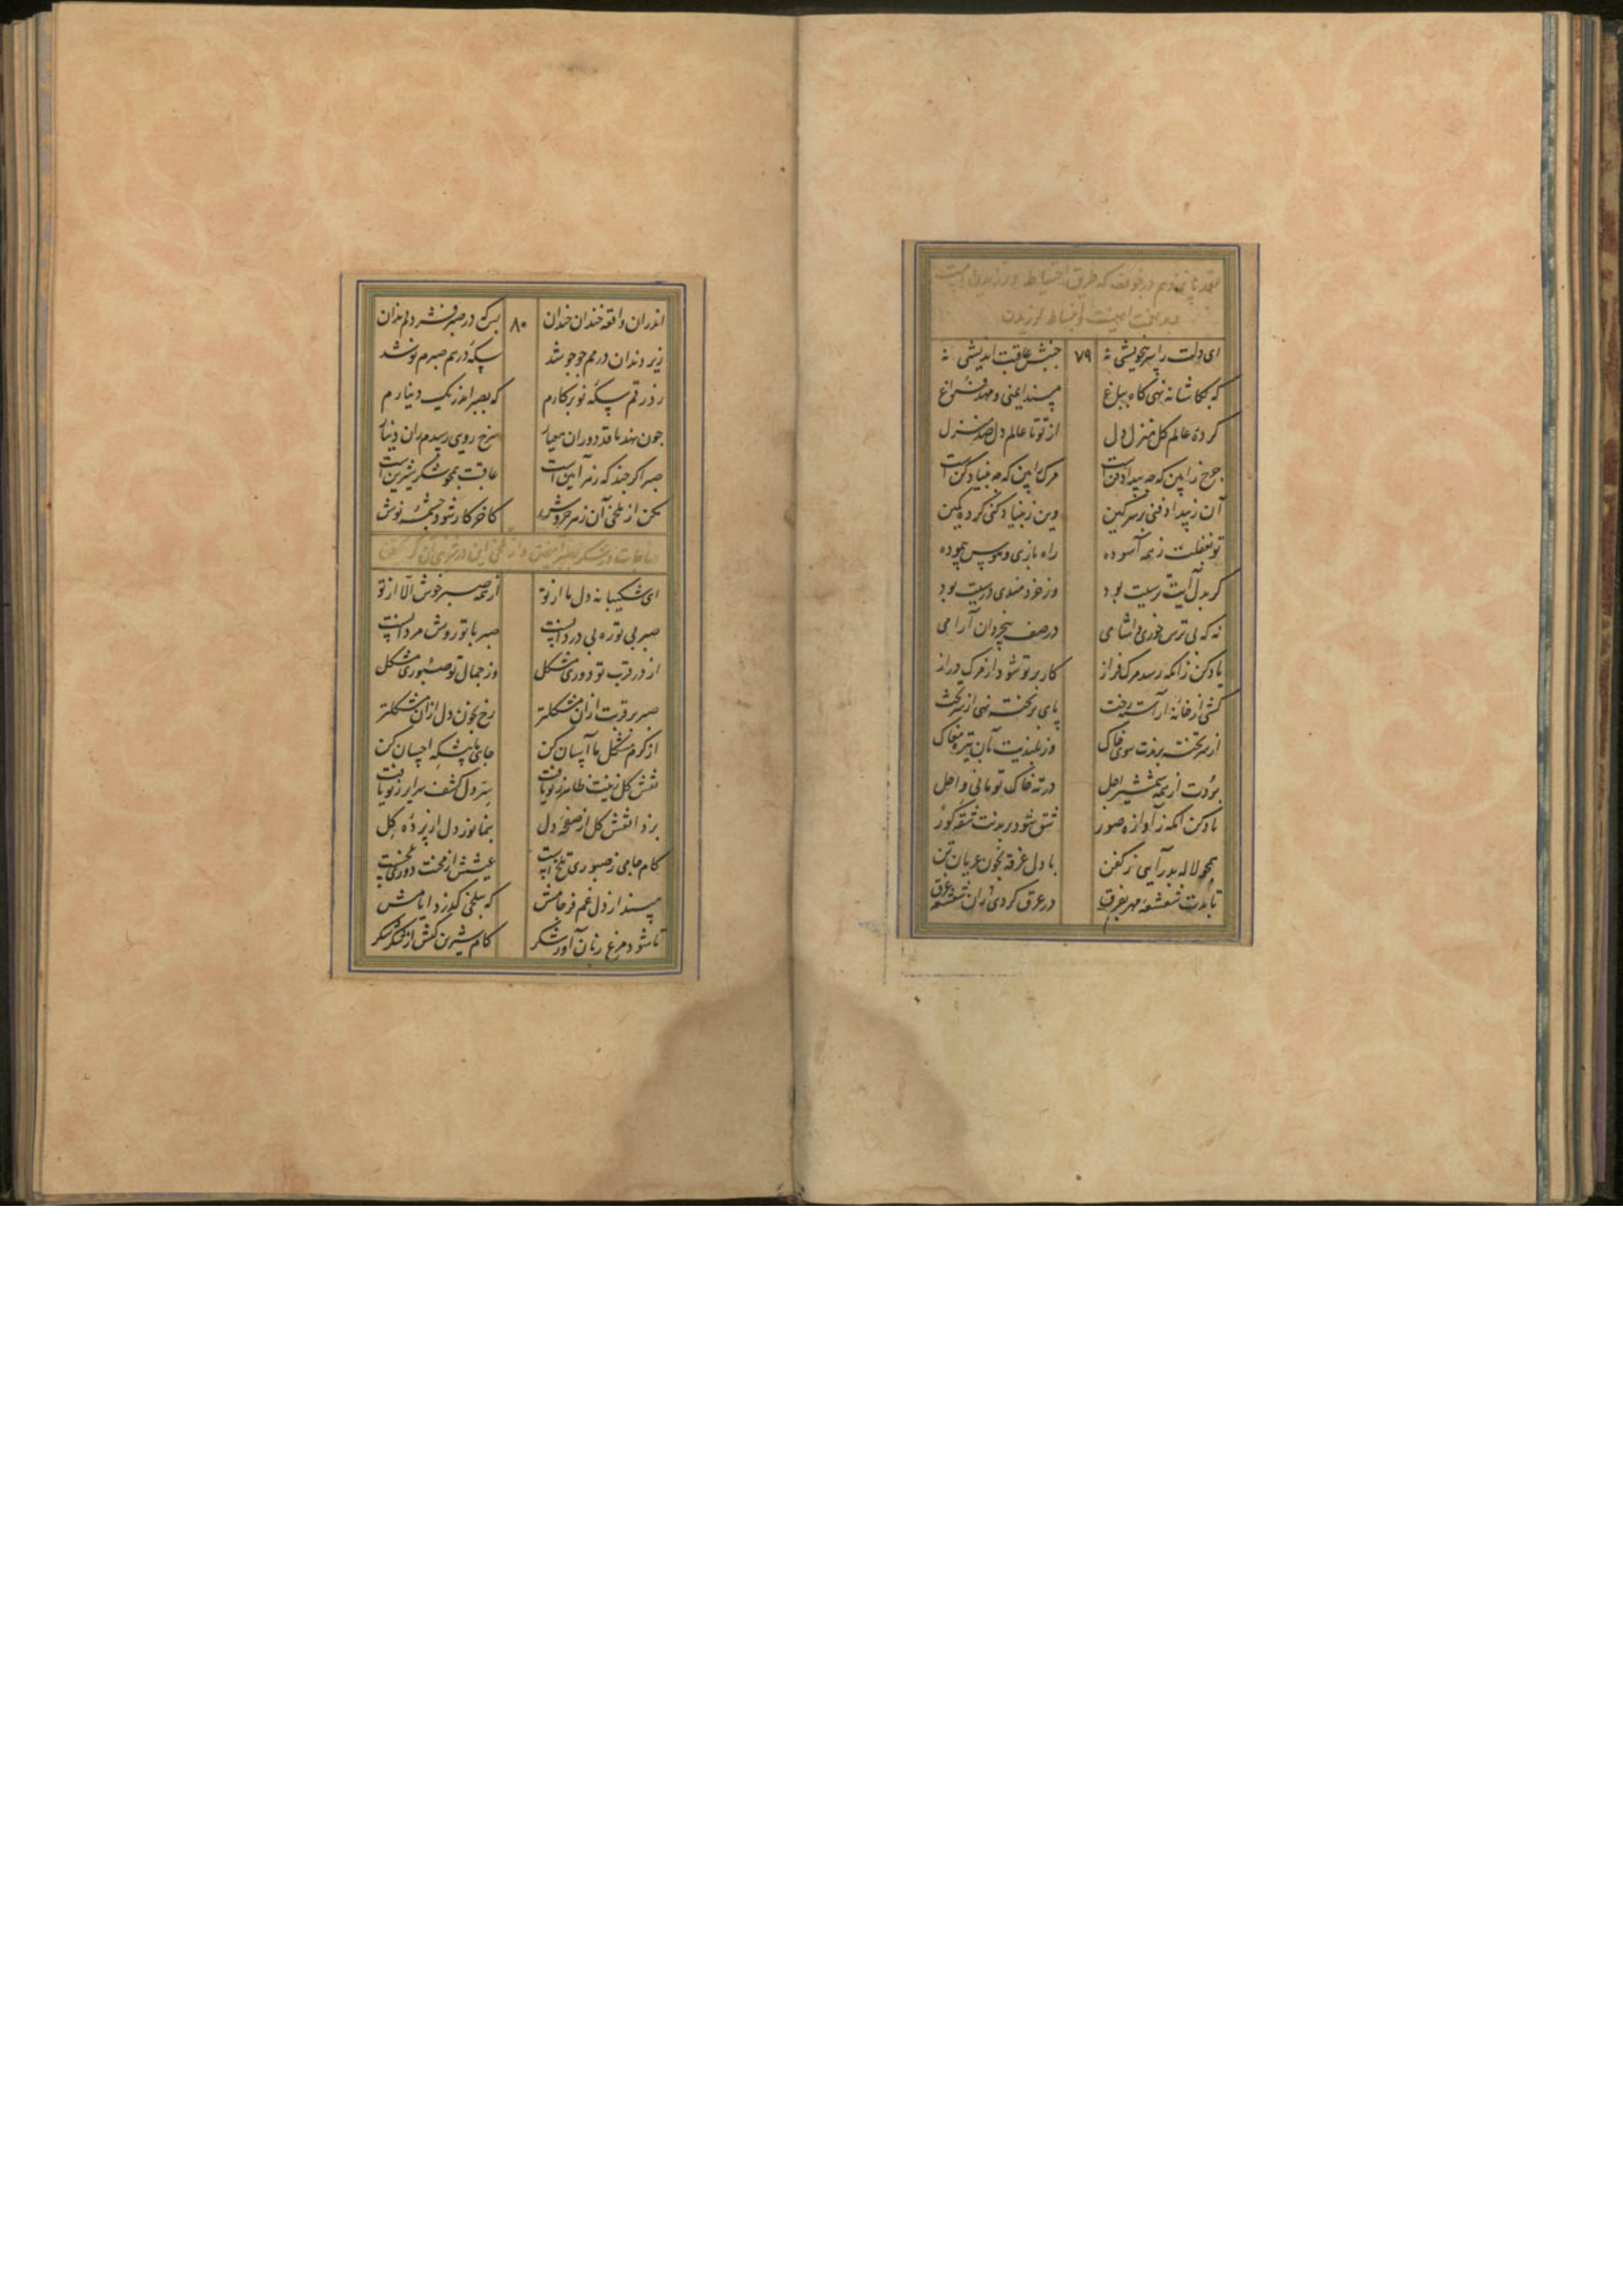 ای دلت را سر بی‌خویشی نه ۷۹ جنبش عاقبت اندیشی نه
که بکاشانه نهی کاه بباغ مسند ایمنی و مهد فراغ
کرده عالم کل منزل دل از تو تا عالم دل صد منزل
چرخ را بین که چه بیداد فن است مرک را بین که چه بنیاد کن است
آن ز بیداد فنی بر سر کین وین ز بنیاد کنی کرده کمین
تو بغفلت ز همه آسوده راه بازی و هوس پیموده
کر بدل آیت ترسیت بود وز خردمندی درسیت بود
نه که بی ترس خوری و آشامی در صف بیخردان آرامی
یاد کن زانکه رسد مرک فراز کار بر تو شود از مرک دراز
کشی از خانه آراسته رخت پای بر تخته نهی از سر تخت
از سر تخته برندت سوی خاک وز بلندیت بآن تیره مغاک
بردت از همه شمشیر اجل در ته خاک تو مانی و اجل
یاد کن آنکه ز آوازه صور شق شود در بدنت شقه کور
همچو لاله بدر آیی ز کفن با دل غرقه بخون عریان تن
تابدت شعشعه مهر بفرق در عرق کردی ازان شعشعه غرق
اندران واقعه خندان خندان ۸۰ بس که در صبر فشردم دندان
زیر دندان درمم جوجو شد سکه درهم صبرم نو شد
زد رقم سکه نو بر کارم که بصبر اندر یک دینارم
چون نهد ناقد دوران معیار سرخ رویی رسدم زان دینار
صبر اکر چند که زهر آیین است عاقبت همچو شکر شیرین است
مکن از تلخی آن زهر خروش کاخر کار شود چشمه نوش
ای شکیبا نه دل ما از تو از همه صبر خوش الا از تو
صبر بی تو ره بی دردانست صبر با تو روش مردانست
از در قرب تو دوری مشکل وز جمال تو صبوری مشکل
صبر بر قربت ازان مشکلتر رخ بخون دل ازان مشکلتر
از کرم مشکل ما آسان کن جای ما پیشکه احسان کن
نقش کل زینت ظاهر ز تو یافت سر دل کشف سرایر ز تو یافت
بزدا نقش کل از صفحه دل بنما نور دل از پرده کل
کام جامی ز صبوری تلخ است عیشش از محنت دوری تلخ است
مپسند از دل غم فرجامش که بتلخی کذرد ایامش
تا شود مرغ زبان آور شکر کام شیرین کنش از شکر شکر